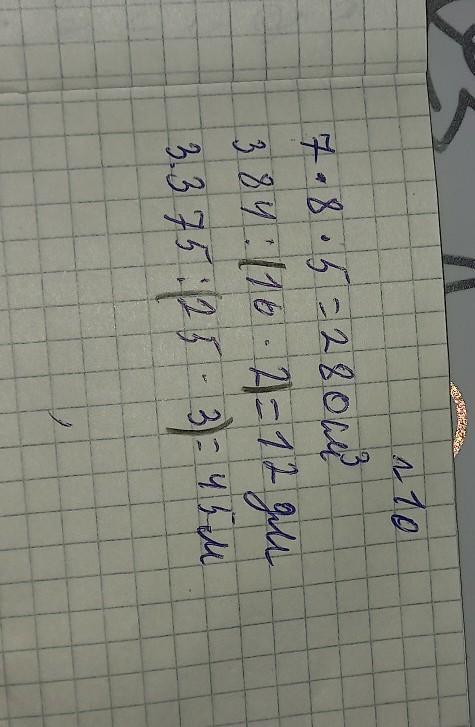 №10
7·8·5=280 см³
384:(16·2)=12 дм
3.375:(25·3)=45 м